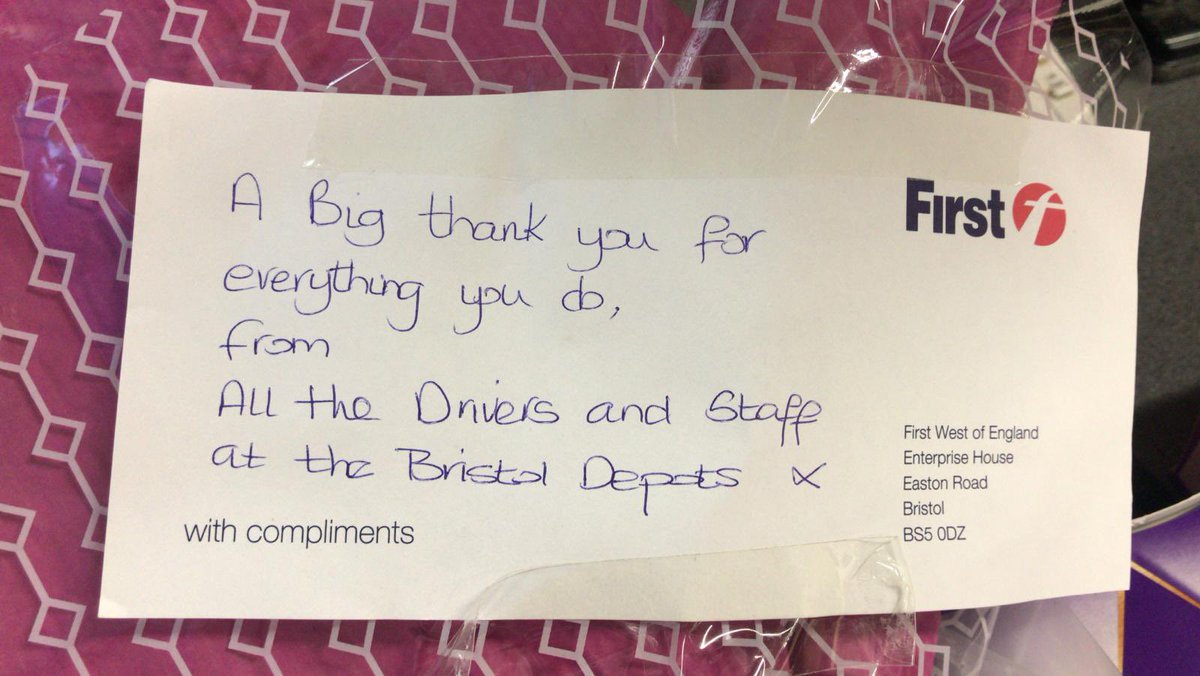 A Big thank you for
everything you do,
from
All the Drivers and Staff
at the Bristol Depots x
with compliments
First f
First West of England
Enterprise House
Easton Road
Bristol
BS5 0DZ